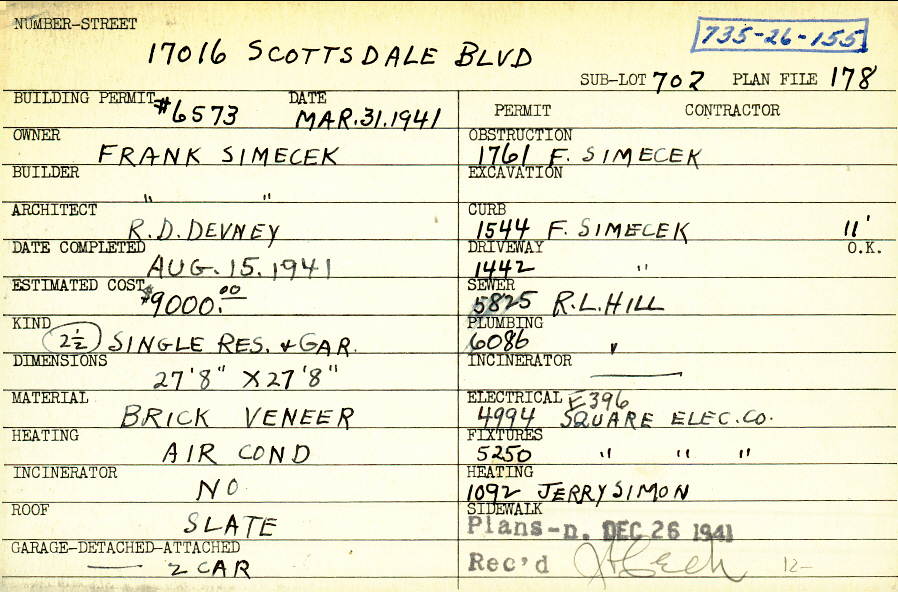 NUMBER-STREET
17016 SCOTTSDALE BLVD
735-26-155
SUB-LOT 702 PLAN FILE 178
BUILDING PERMIT #6573 DATE MAR.31.1941
PERMIT CONTRACTOR
OWNER FRANK SIMECEK
OBSTRUCTION 1761 F. SIMECEK
BUILDER " "
EXCAVATION
ARCHITECT R.D. DEVNEY
CURB 1544 F. SIMECEK 11'
DATE COMPLETED AUG. 15. 1941
DRIVEWAY 1442 " O.K.
ESTIMATED COST $9000.00
SEWER 5825 R.L. HILL
KIND 2½ SINGLE RES. & GAR.
PLUMBING 6086 "
DIMENSIONS 27'8" X 27'8"
INCINERATOR —
MATERIAL BRICK VENEER
ELECTRICAL E396
4994 SQUARE ELEC. CO.
HEATING AIR COND
FIXTURES 5250 " " "
INCINERATOR NO
HEATING 1092 JERRY SIMON
ROOF SLATE
SIDEWALK
Plans-n. DEC 26 1941
GARAGE-DETACHED-ATTACHED
— 2 CAR
Rec'd 12-